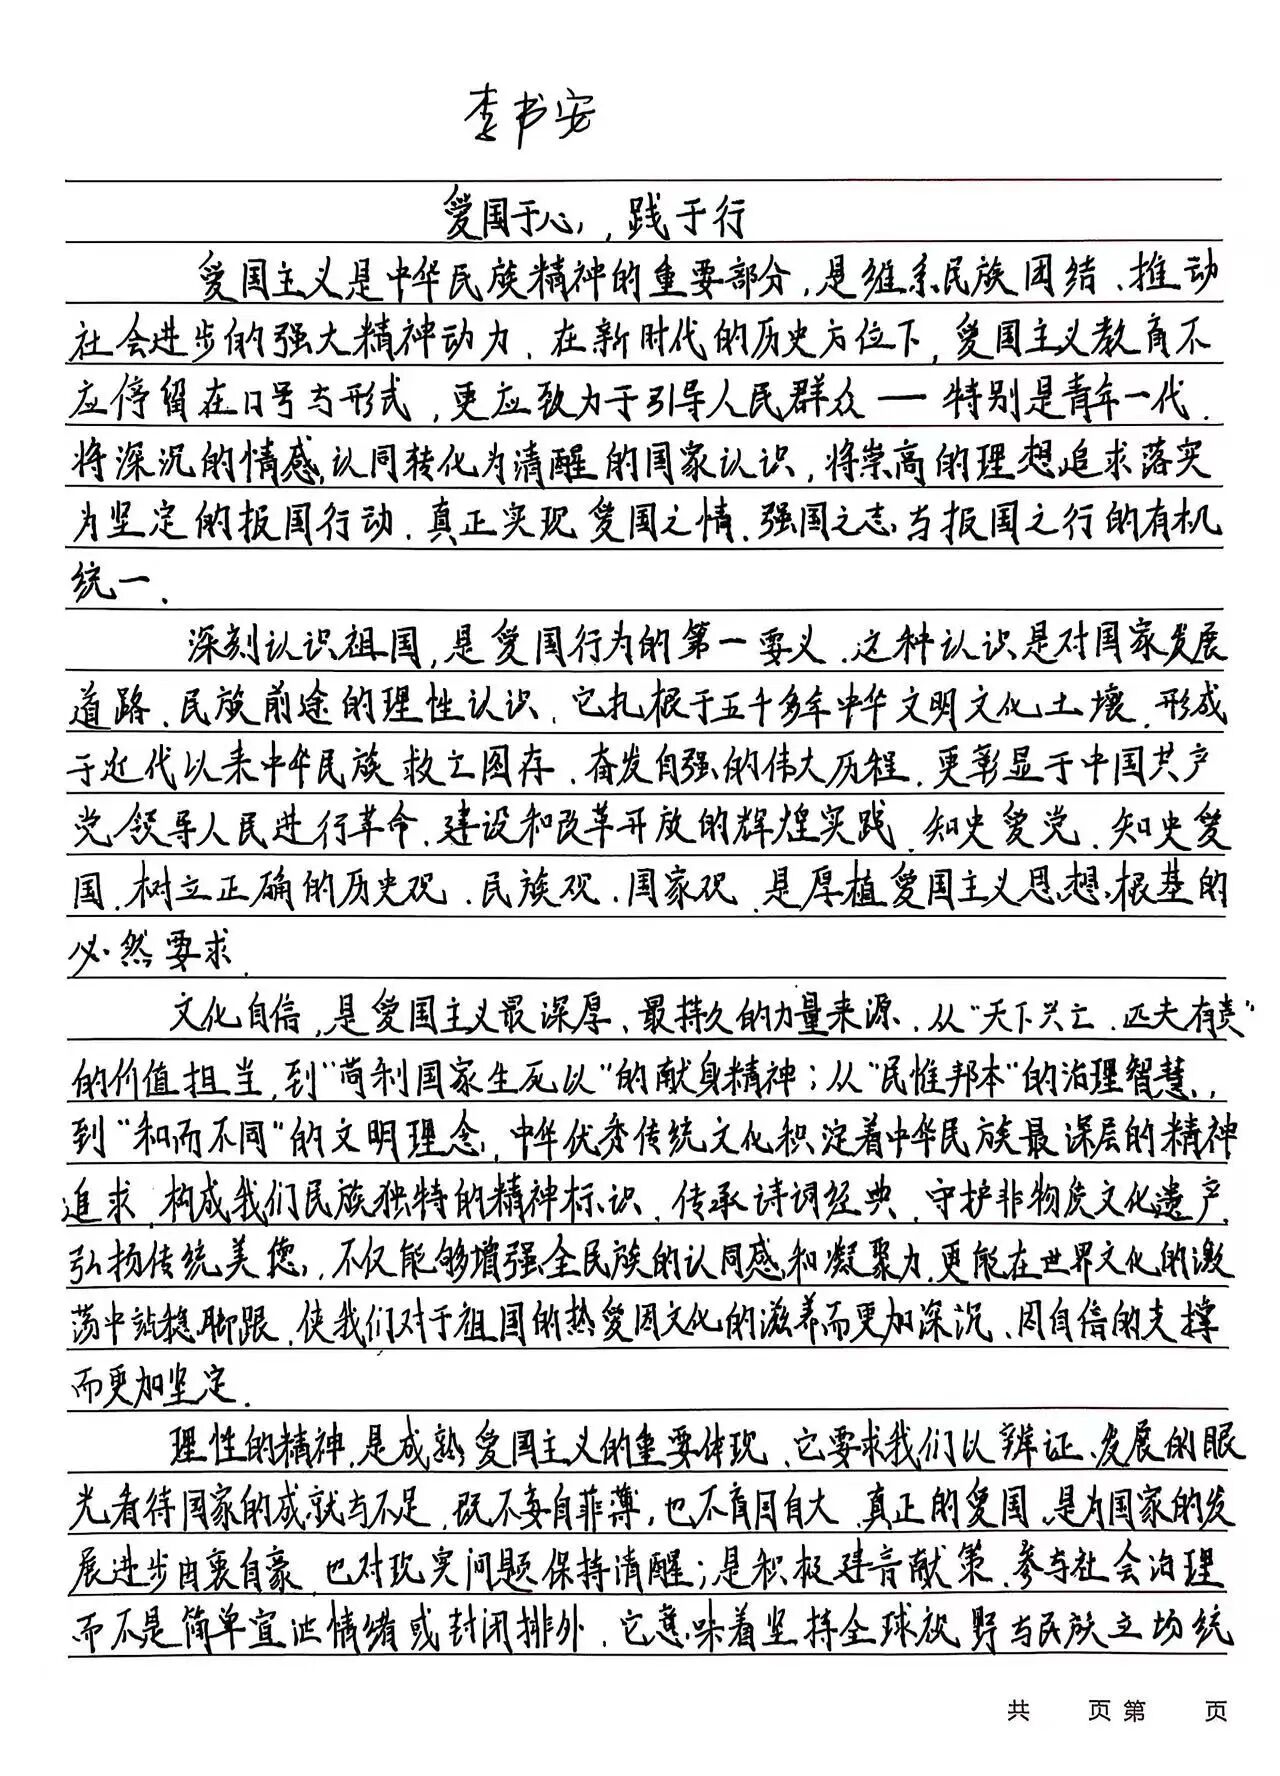 李书安
爱国于心，践于行
爱国主义是中华民族精神的重要部分，是维系民族团结、推动
社会进步的强大精神动力．在新时代的历史方位下，爱国主义教育不
应停留在口号与形式，更应致力于引导人民群众——特别是青年一代．
将深沉的情感认同转化为清醒的国家认识，将崇高的理想追求落实
为坚定的报国行动．真正实现爱国之情．强国之志与报国之行的有机
统一．
深刻认识祖国，是爱国行为的第一要义．这种认识是对国家发展
道路、民族前途的理性认识．它扎根于五千多年中华文明文化土壤．形成
于近代以来中华民族救亡图存．奋发自强的伟大历程．更彰显于中国共产
党领导人民进行革命．建设和改革开放的辉煌实践．知史爱党．知史爱
国．树立正确的历史观．民族观．国家观．是厚植爱国主义思想根基的
必然要求．
文化自信，是爱国主义最深厚、最持久的力量来源．从“天下兴亡．匹夫有责”
的价值担当，到“苟利国家生死以”的献身精神；从“民惟邦本”的治理智慧，
到“和而不同”的文明理念，中华优秀传统文化积淀着中华民族最深层的精神
追求．构成我们民族独特的精神标识．传承诗词经典．守护非物质文化遗产．
弘扬传统美德，不仅能够增强全民族的认同感和凝聚力．更能在世界文化的激
荡中站稳脚跟．使我们对于祖国的热爱因文化的滋养而更加深沉、因自信的支撑
而更加坚定．
理性的精神．是成熟爱国主义的重要体现．它要求我们以辩证、发展的眼
光看待国家的成就与不足．既不妄自菲薄，也不盲目自大．真正的爱国．是为国家的发
展进步由衷自豪．也对现实问题保持清醒；是积极建言献策．参与社会治理
而不是简单宣泄情绪或封闭排外．它意味着坚持全球视野与民族立场统
共 页 第 页